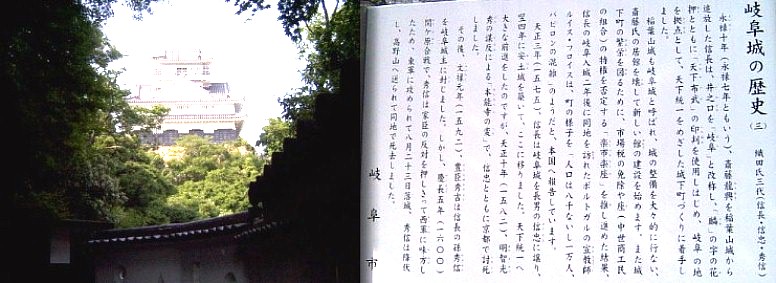 岐阜城の歴史 (三) 織田氏三代(信長・信忠・秀信)
永禄十年(永禄七年ともいう)、斎藤龍興を稲葉山城から
追放した信長は、井之口を「岐阜」と改称し、「麟」の字の花
押とともに「天下布武」の印判を使用しはじめ、岐阜の地
を拠点として、天下統一をめざした城下町づくりに着手し
ました。
稲葉山城も岐阜城と呼ばれ、城の整備を大々的に行ない、
斎藤氏の居館を壊して新しい館の建設を始めます。また城
下町の繁栄を図るために、市場税の免除や座(中世商工民
の組合)の特権を否定する「楽市楽座」を推し進めた結果、
信長の岐阜入城二年後に同地を訪れたポルトガルの宣教師
ルイス・フロイスは、町の様子を「人口は八千ないし一万人、
バビロンの混雑」のようだと、本国へ報告しています。
天正三年(一五七五)、信長は岐阜城を長男の信忠に譲り、
翌四年に安土城を築いて、ここに移りました。天下統一へ
大きな前進をしたのですが、天正十年(一五八二)、明智光
秀の謀反による「本能寺の変」で、信忠とともに京都で討死
しました。
その後、文禄元年(一五九二)、豊臣秀吉は信長の孫秀信
を岐阜城主に封じました。しかし、慶長五年(一六〇〇)
関ケ原合戦で、秀信は家臣の反対を押しきって西軍に味方し
たため、東軍に攻められて八月二十三日落城、秀信は降伏
し、高野山へ送られて同地で死去しました。
岐阜市